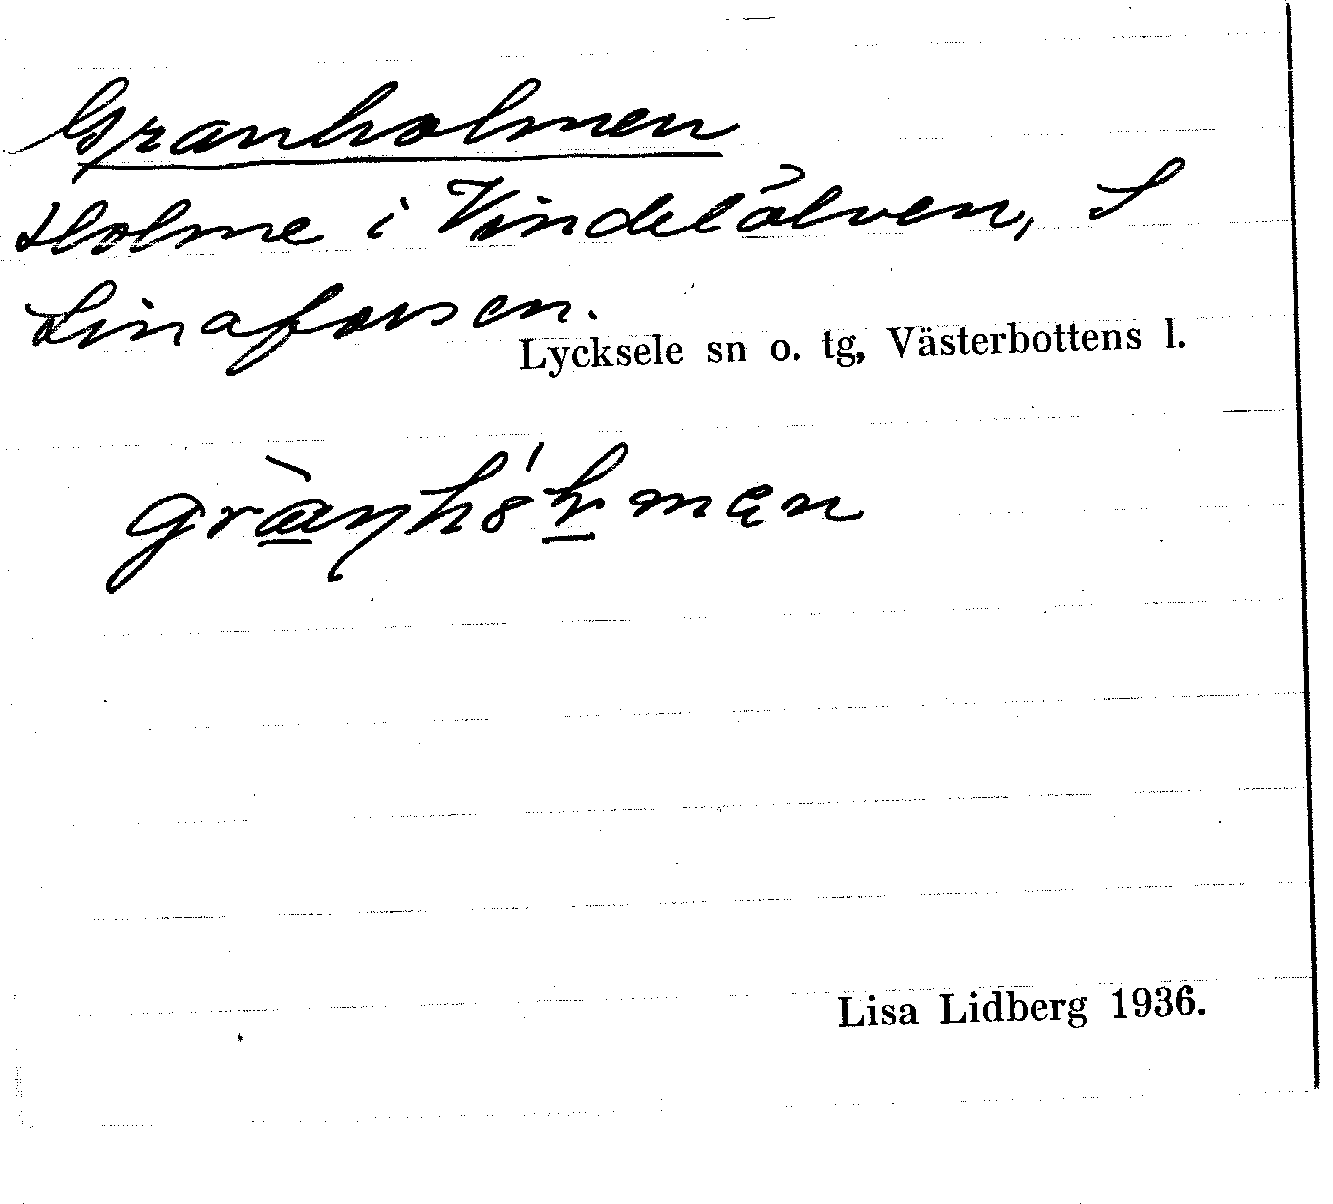 Granholmen
Holme i Vindelälven, S
Linaforsen.
Lycksele sn o. tg, Västerbottens l.
Lisa Lidberg 1936.